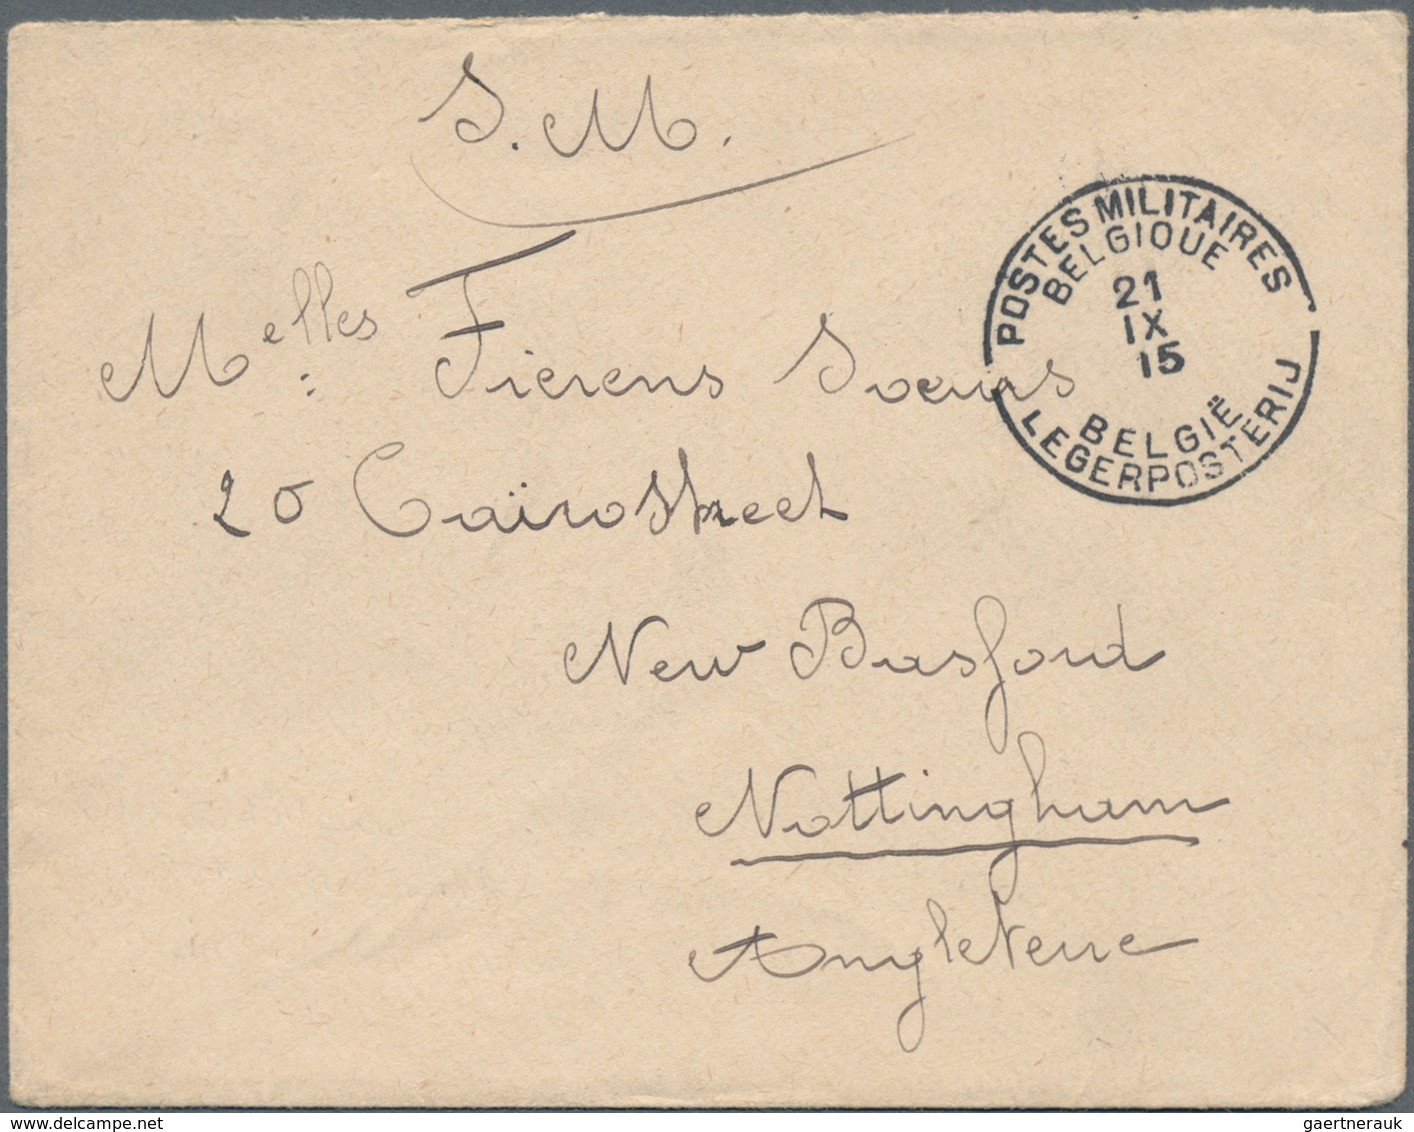 S.M.
POSTES MILITAIRES
BELGIQUE
21
IX
15
BELGIË
LEGERPOSTERIJ
Melles Fierens Soeurs
20 Caïrostreet
New Basford
Nottingham
Angleterre
gaertnerauk